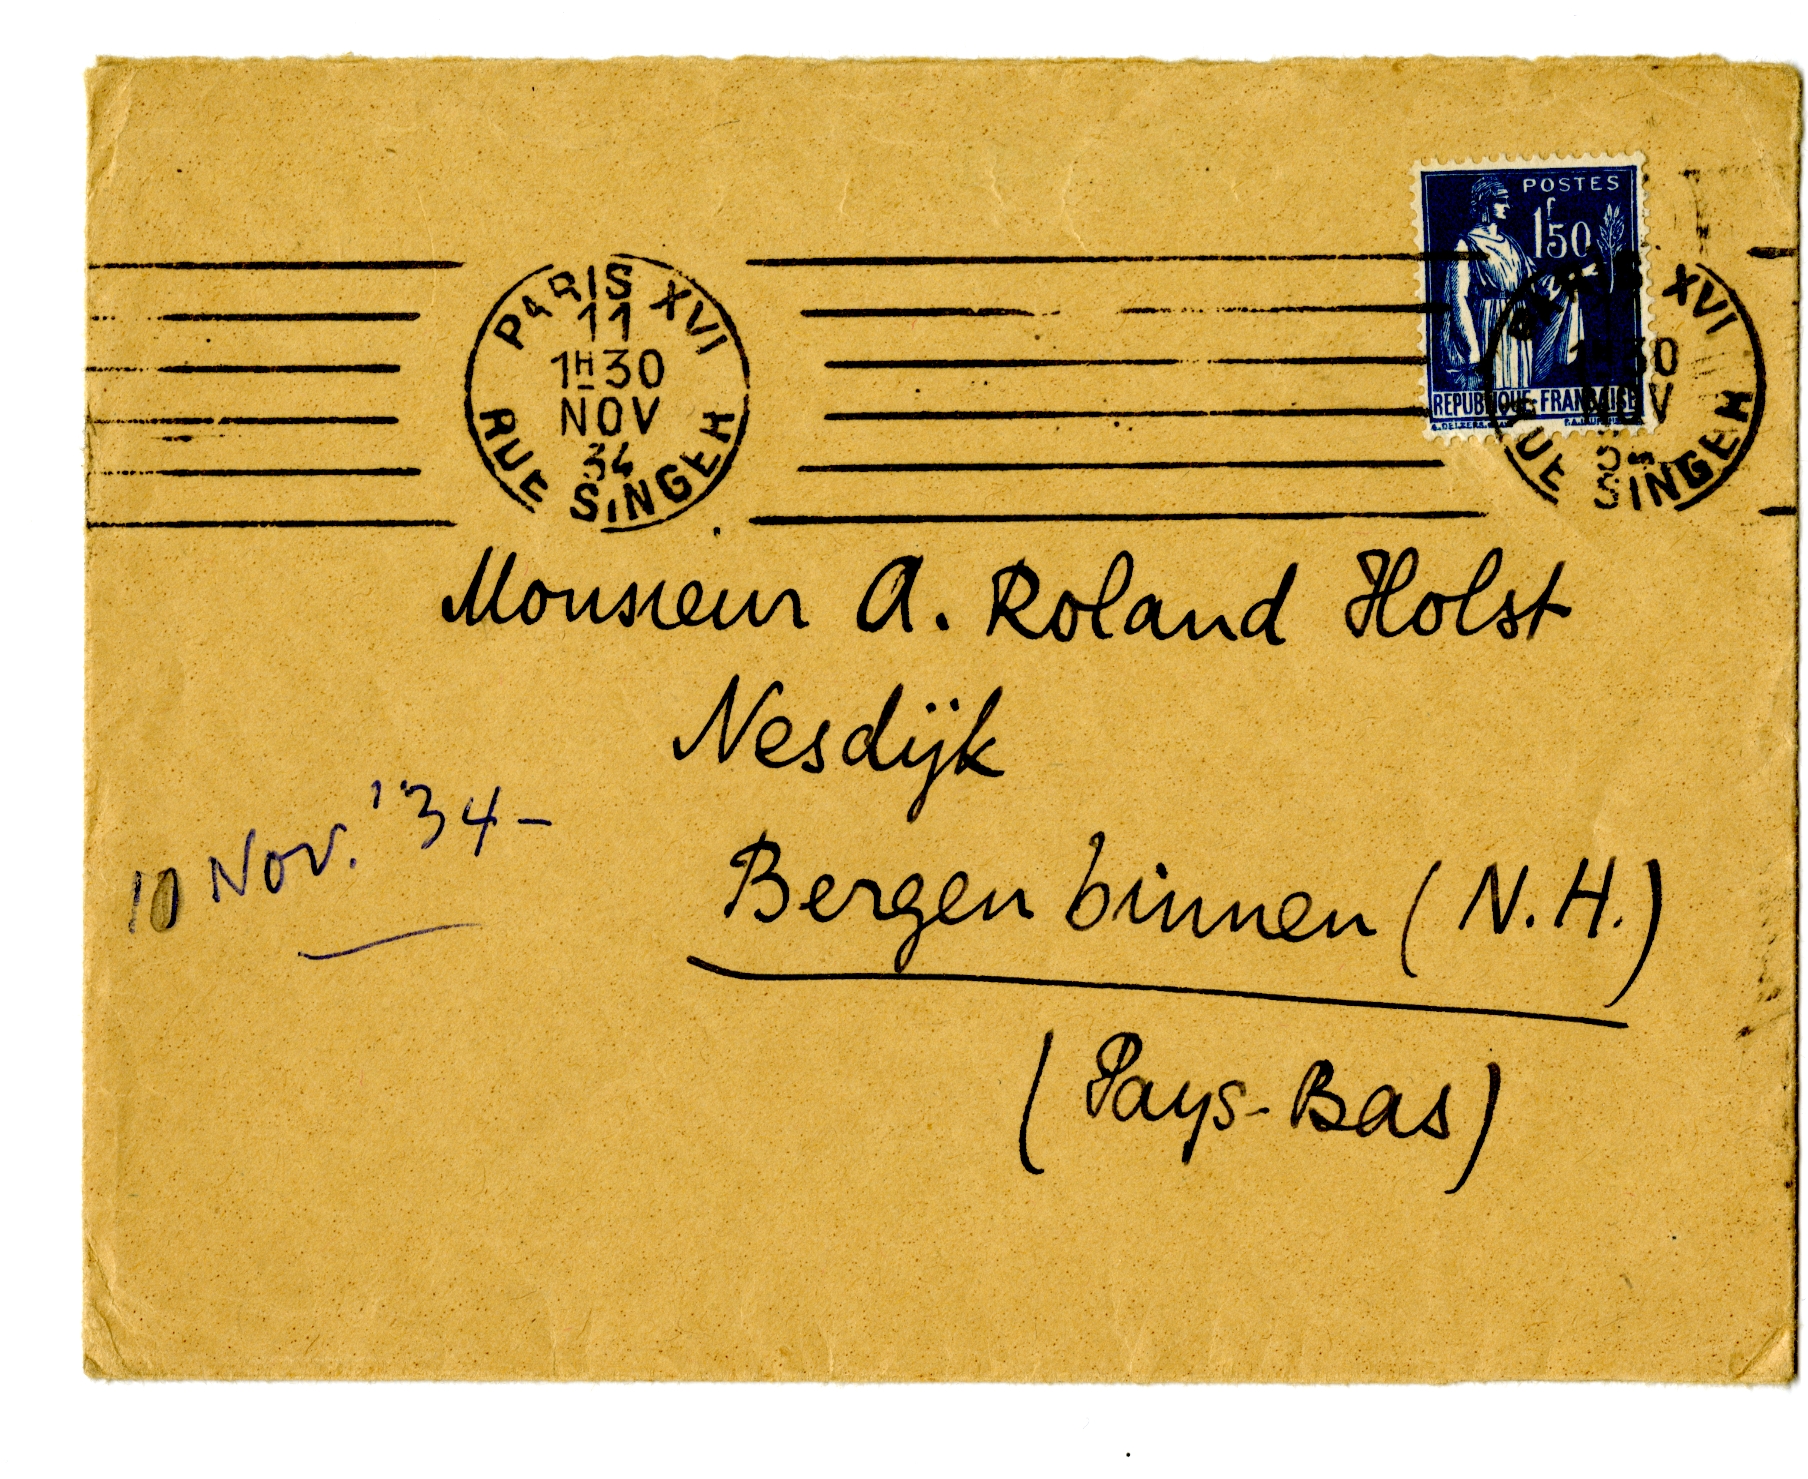 POSTES
1f50
REPUBLIQUE FRANÇAISE
PARIS XVI
11
1H30
NOV
34
RUE SINGER
PARIS XVI
1H30
NOV
34
RUE SINGER
Monsieur A. Roland Holst
Nesdijk
10 Nov. '34-
Bergen binnen (N.H.)
(Pays-Bas)